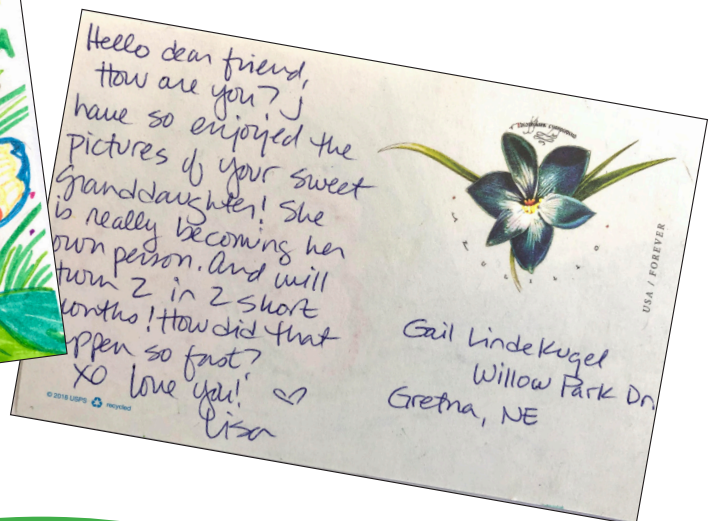 Hello dear friend,
How are you? I
have so enjoyed the
pictures of your sweet
granddaughter! She
is really becoming her
own person. And will
turn 2 in 2 short
onths! How did that
ppen so fast?
XO love you! ♡
Lisa
© 2018 USPS recycled
USA / FOREVER
Gail Lindekugel
Willow Park Dr.
Gretna, NE